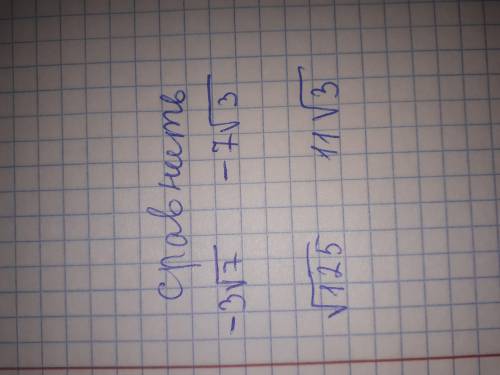 сравнить
-3√7 -7√3
√125 11√3